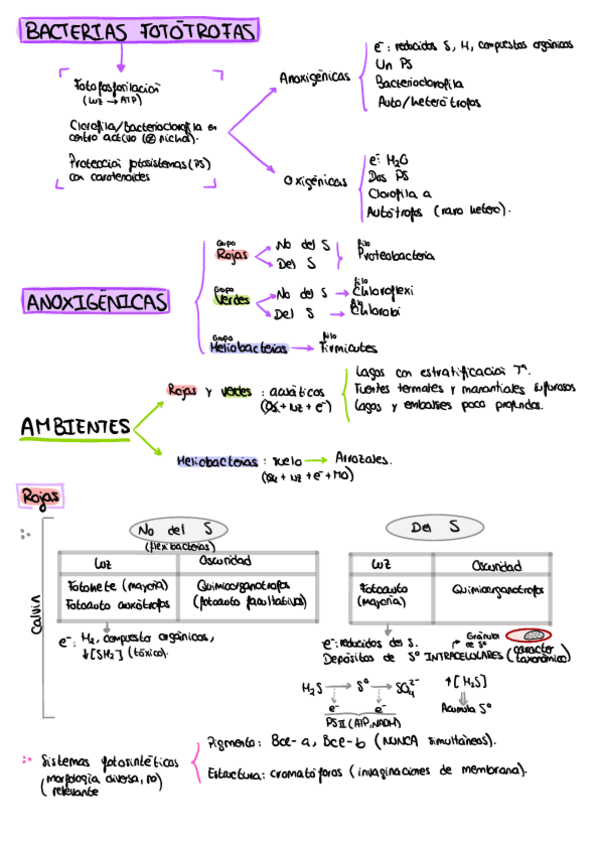 BACTERIAS FOTÓTROFAS
Fotofosforilación
(luz → ATP)
Clorofila/Bacterioclorofila en
centro activo (② nichos).
Protección fotosistemas (PS)
con carotenoides
Anoxigénicas
e⁻: reducidos S, H, compuestos orgánicos
Un PS
Bacterioclorofila
Auto/heterótrofos
Oxigénicas
e⁻: H₂O
Dos PS
Clorofila a
Autótrofos (raro hetero).
ANOXIGÉNICAS
Grupo
Rojas
No del S
Del S
filo
Proteobacteria
Grupo
Verdes
No del S → filo Chloroflexi
Del S → filo Chlorobi
Grupo
Heliobacterias → filo Firmicutes
AMBIENTES
Rojas y verdes: acuáticos
(O₂ + luz + e⁻)
Lagos con estratificación Tª.
Fuertes termales y manantiales sulfurosos
Lagos y embalses poco profundos.
Heliobacterias: suelo → Arrozales.
(O₂ + luz + e⁻ + MO)
Rojas
Calvin
No del S
(flexibacterias)
Luz
Oscuridad
Fotohete (mayoría)
Fotoauto auxótrofos
Quimioorganotrofos
(fotoauto facultativos)
e⁻: H₂, compuesto orgánicos,
↓[SH₂] (tóxico).
Del S
Luz
Oscuridad
Fotoauto
(mayoría)
Quimioorganotrofos
e⁻: reducidos del S.
Gránulo
de S⁰
Depósitos de S⁰ INTRACELULARES (carácter
taxonómico)
H₂S → S⁰ → SO₄²⁻
e⁻ e⁻
PSII (ATP, NADH)
↑[H₂S]
Acumula S⁰
Sistemas fotosintéticos
(morfología diversa, no)
(relevante
Pigmento: Bcl-a, Bcl-b (NUNCA simultáneas).
Estructura: cromatóforos (invaginaciones de membrana).